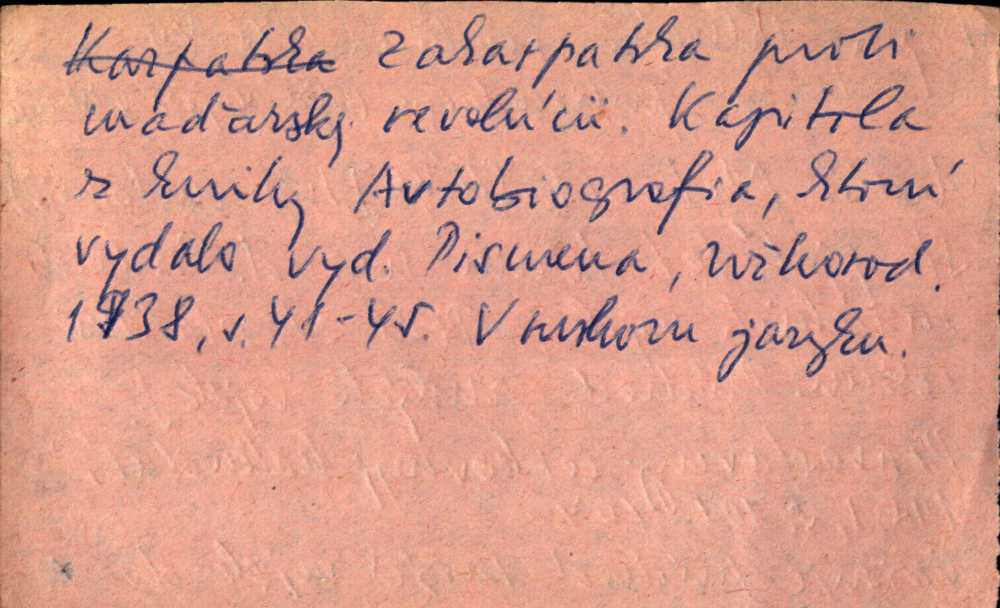 Karpatska Zakarpatska proti
maďarskej revolúcii. Kapitola
z knihy Avtobiografia, ktorú
vydalo vyd. Pismena, Užhorod.
1938, s. 41-45. V ruskom jazyku.